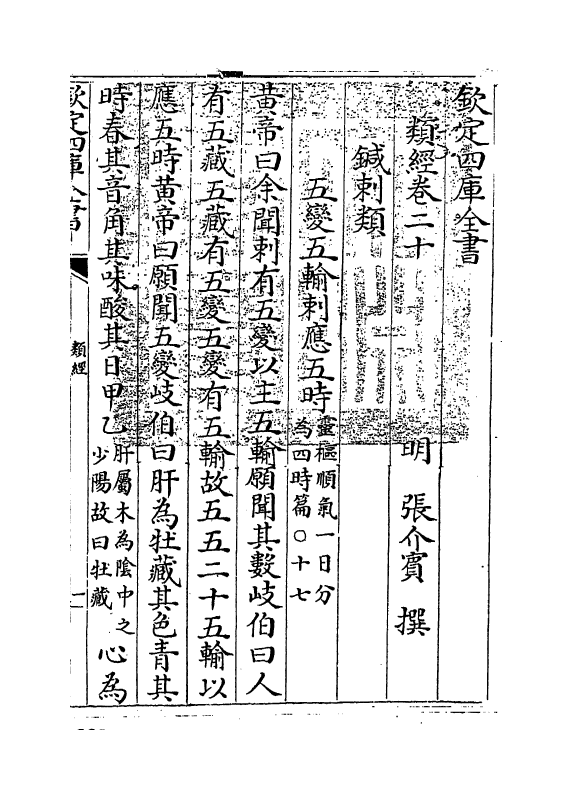 欽定四庫全書
類經卷二十
明 張介賓 撰
鍼刺類
五變五輸刺應五時靈樞順氣一日分
為四時篇○十七
黄帝曰余聞刺有五變以主五輸願聞其數岐伯曰人
有五藏五藏有五變五變有五輸故五五二十五輸以
應五時黄帝曰願聞五變岐伯曰肝為牡藏其色青其
時春其音角其味酸其日甲乙肝屬木為陰中之
少陽故曰牡藏心為
欽定四庫全書
類經
一